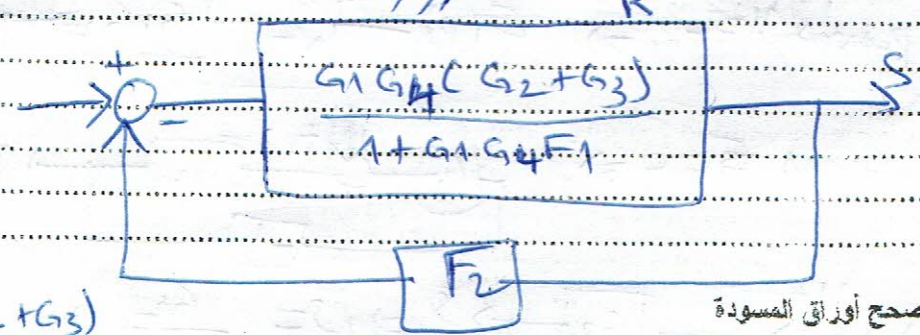 R
+
G1 G4 ( G2 + G3 )
S
-
1 + G1 G4 F1
F2
+ G3)
صحح أوراق المسودة